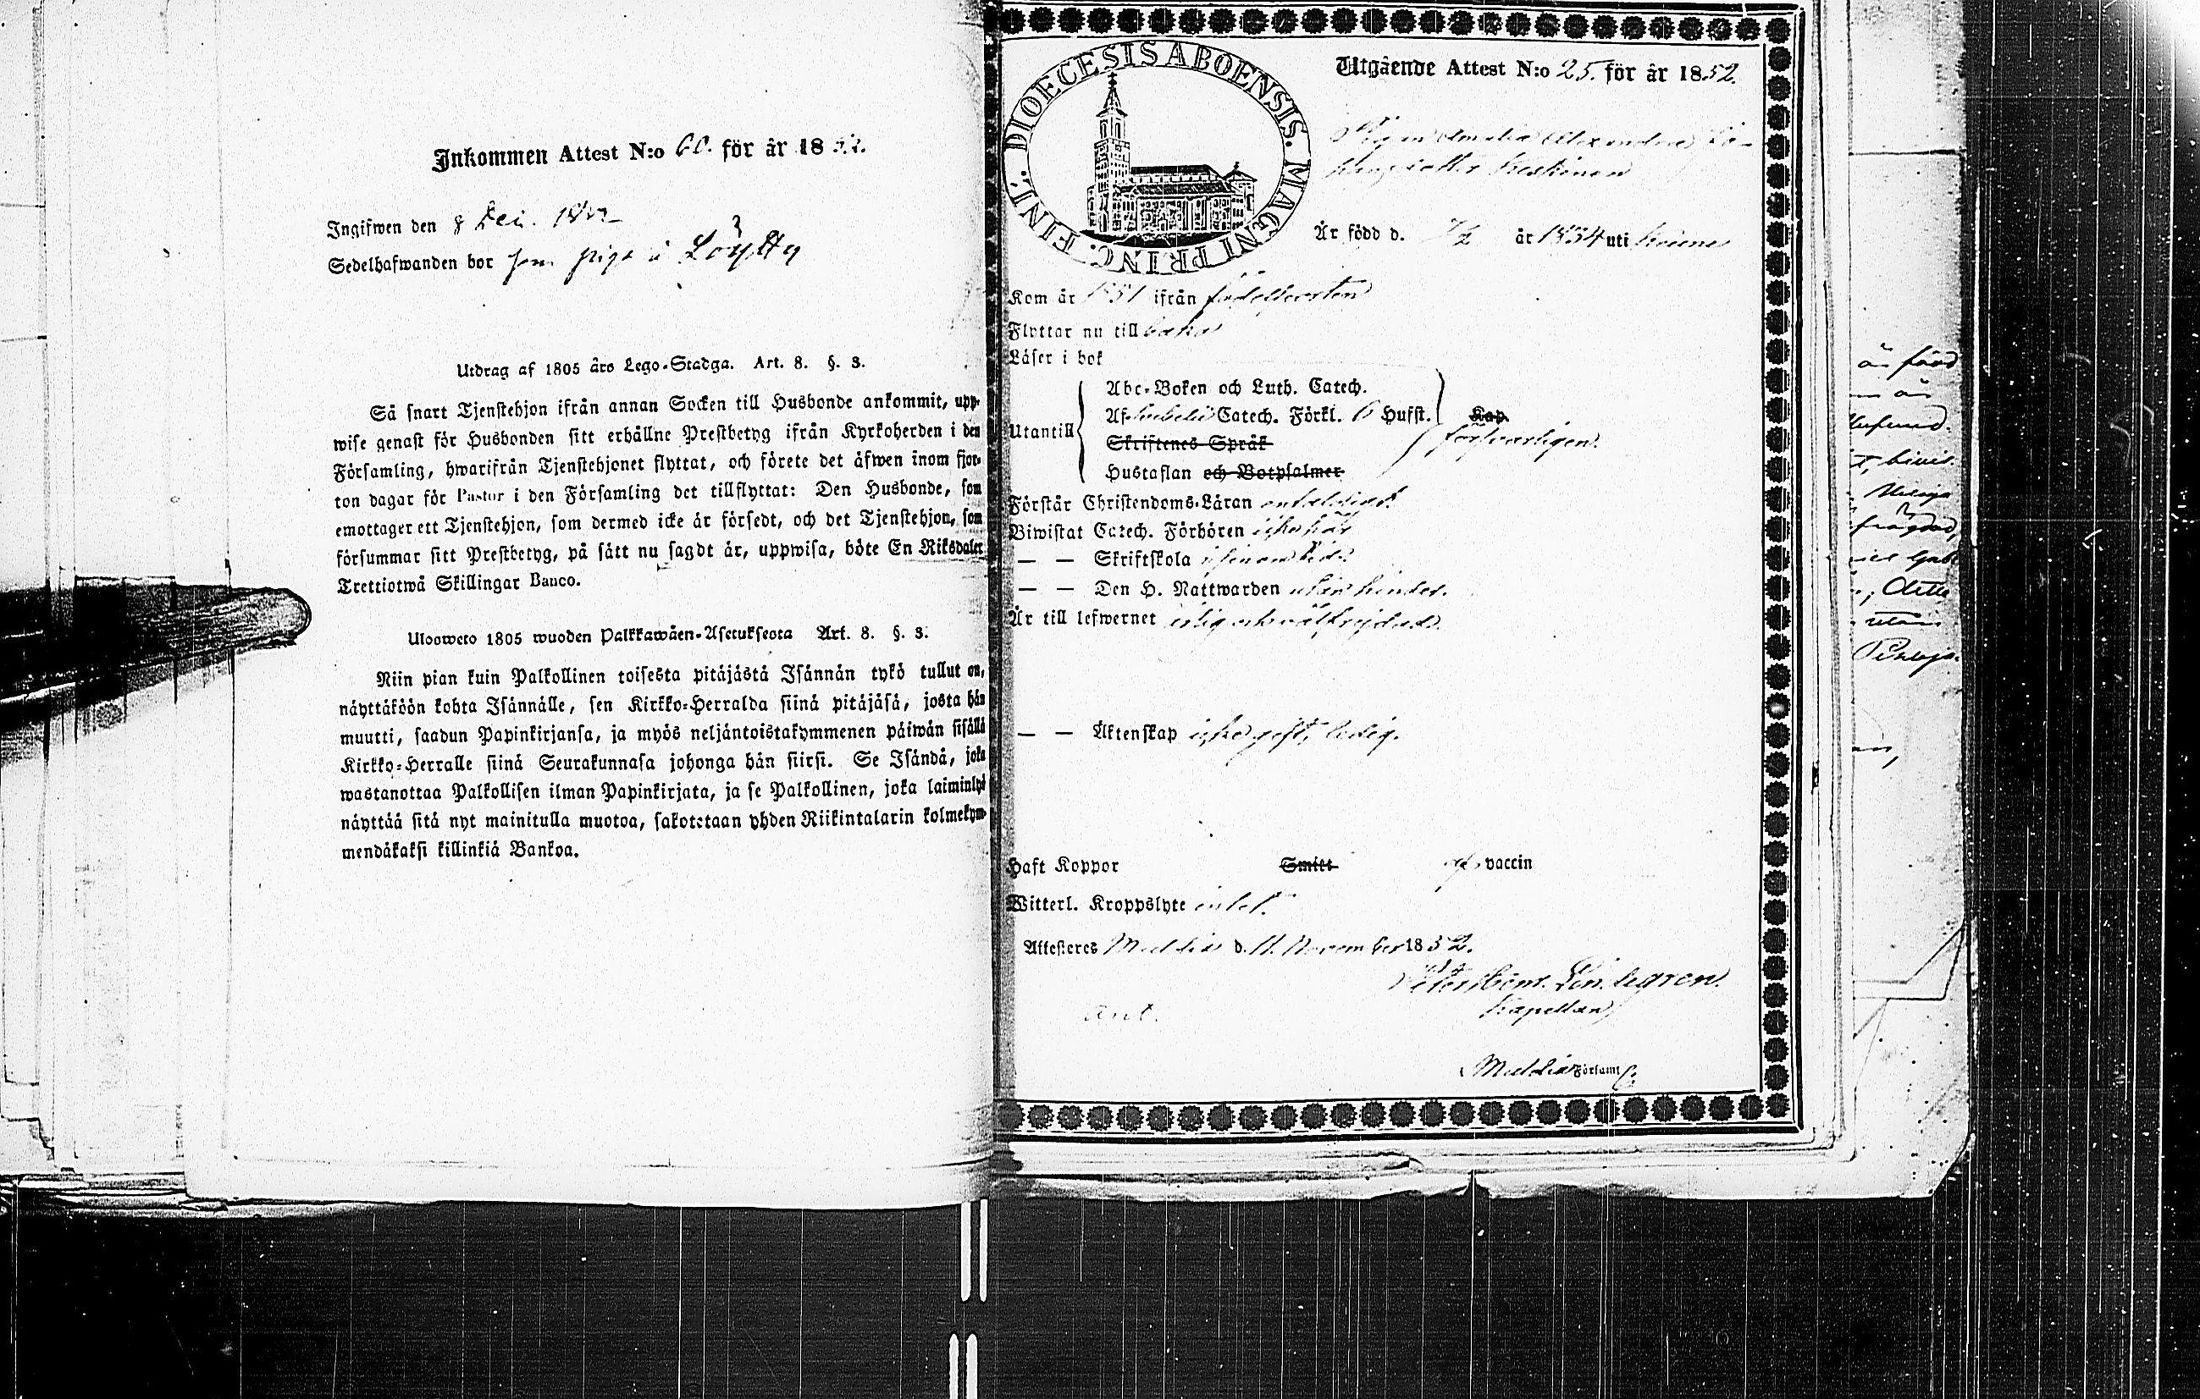 Inkommen Attest N:o 60. för år 1852.
Ingifwen den 8 Dec. 1852
Sedelhafwanden bor som piga å Löytty
Utdrag af 1805 års Lego-Stadga. Art. 8. §. 3.
Så snart Tjenstehjon ifrån annan Socken till Husbonde ankommit, upp-
wise genast för Husbonden sitt erhållne Prestbetyg ifrån Kyrkoherden i den
Församling, hwarifrån Tjenstehjonet flyttat, och förete det äfwen inom fjor-
ton dagar för Pastor i den Församling det tillflyttat: Den Husbonde, som
emottager ett Tjenstehjon, som dermed icke är försedt, och det Tjenstehjon, som
försummar sitt Prestbetyg, på sätt nu sagdt är, uppwisa, böte En Riksdaler
Trettiotwå Skillingar Banco.
Ulosweto 1805 wuoden Palkkawäen-Asetuksesta Art. 8. §. 3.
Niin pian kuin Palkollinen toisesta pitäjästä Isännän tykö tullut on,
näyttäköön kohta Isännälle, sen Kirkko-Herralda siinä pitäjäsä, josta hän
muutti, saadun Papinkirjansa, ja myös neljäntoistakymmenen päiwän sisällä
Kirkko-Herralle siinä Seurakunnasa johonga hän siirsi. Se Isändä, joka
wastanottaa Palkollisen ilman Papinkirjata, ja se Palkollinen, joka laiminlyö
näyttää sitä nyt mainitulla muotoa, sakotetaan yhden Riikintalarin kolmekym-
mendäkaksi killinkiä Bankoa.
DIOECESIS ABOENSIS. MAGNI PRINC. FINL.
Utgående Attest N:o 25. för år 1852.
Pigan Amalia Alexandra
Keskinen
Är född d. år 1834 uti
Kom år 1851 ifrån födelseorten
Flyttar nu till baka
Läser i bok
Abc-Boken och Luth. Catech.
Af Svebelii Catech. Förkl. 6 Hufst. Kap.
Utantill försvarligen.
Skriftenes Språk
Hustaflan och Botpsalmer
Förstår Christendoms-Läran
Biwistat Catech. Förhören icke här
— — Skriftskola i sinom tid.
— — Den H. Nattwarden utan hinder.
Är till lefwernet ärlig och välfrejdad.
— — Äktenskap icke gift, ledig.
Haft Koppor Smitt af vaccin
Witterl. Kroppslyte intet.
Attesteras Muldia d. 11 November 1852.
Lindegren.
Kapellan
Muldia Församl.
är född